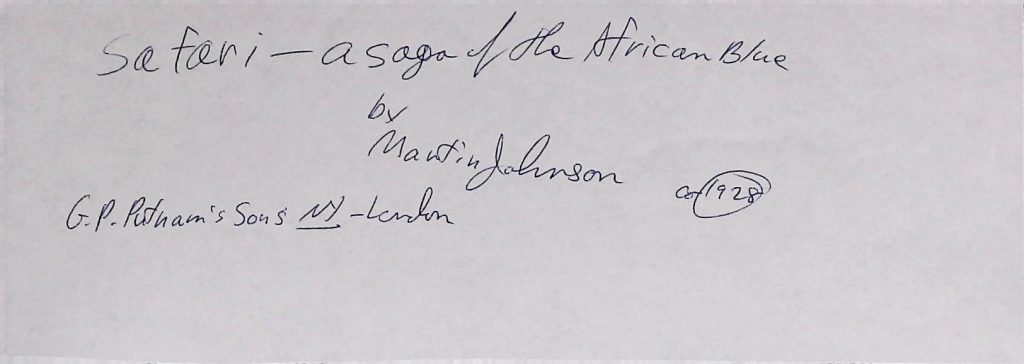 Safari - a saga of the African Blue
by
Martin Johnson
co 1928
G.P. Putnam's Sons NY - London